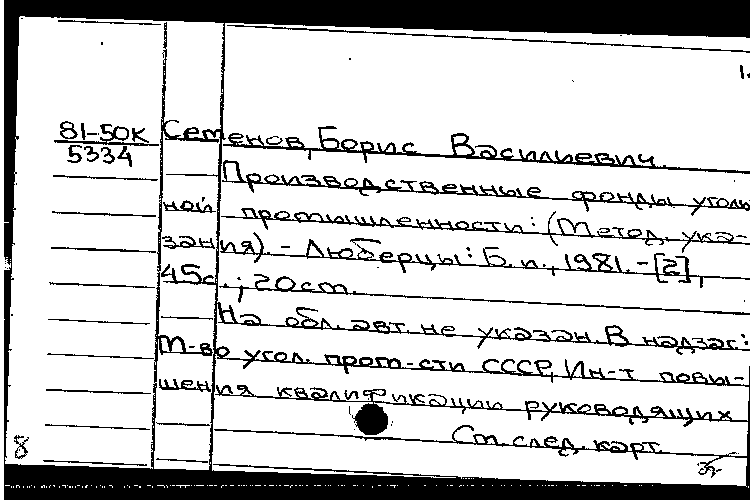 1.
81-50К
5334
Семенов, Борис Васильевич.
Производственные фонды уголь
ной промышленности: (Метод. ука-
зания). - Люберцы: Б. и., 1981. - [2],
45с.; 20см.
На обл. авт. не указан. В надзаг:
М-во угол. пром-сти СССР, Ин-т повы-
шения квалификации руководящих
См. след. карт.
8